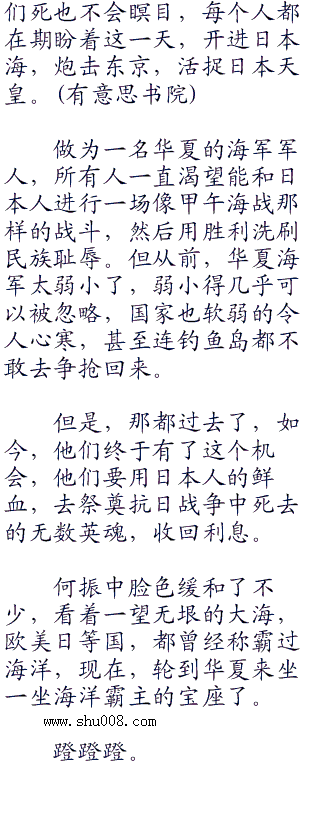 们死也不会瞑目，每个人都
在期盼着这一天，开进日本
海，炮击东京，活捉日本天
皇。(有意思书院)
做为一名华夏的海军军
人，所有人一直渴望能和日
本人进行一场像甲午海战那
样的战斗，然后用胜利洗刷
民族耻辱。但从前，华夏海
军太弱小了，弱小得几乎可
以被忽略，国家也软弱的令
人心寒，甚至连钓鱼岛都不
敢去争抢回来。
但是，那都过去了，如
今，他们终于有了这个机
会，他们要用日本人的鲜
血，去祭奠抗日战争中死去
的无数英魂，收回利息。
何振中脸色缓和了不
少，看着一望无垠的大海，
欧美日等国，都曾经称霸过
海洋，现在，轮到华夏来坐
一坐海洋霸主的宝座了。
www.shu008.com
蹬蹬蹬。